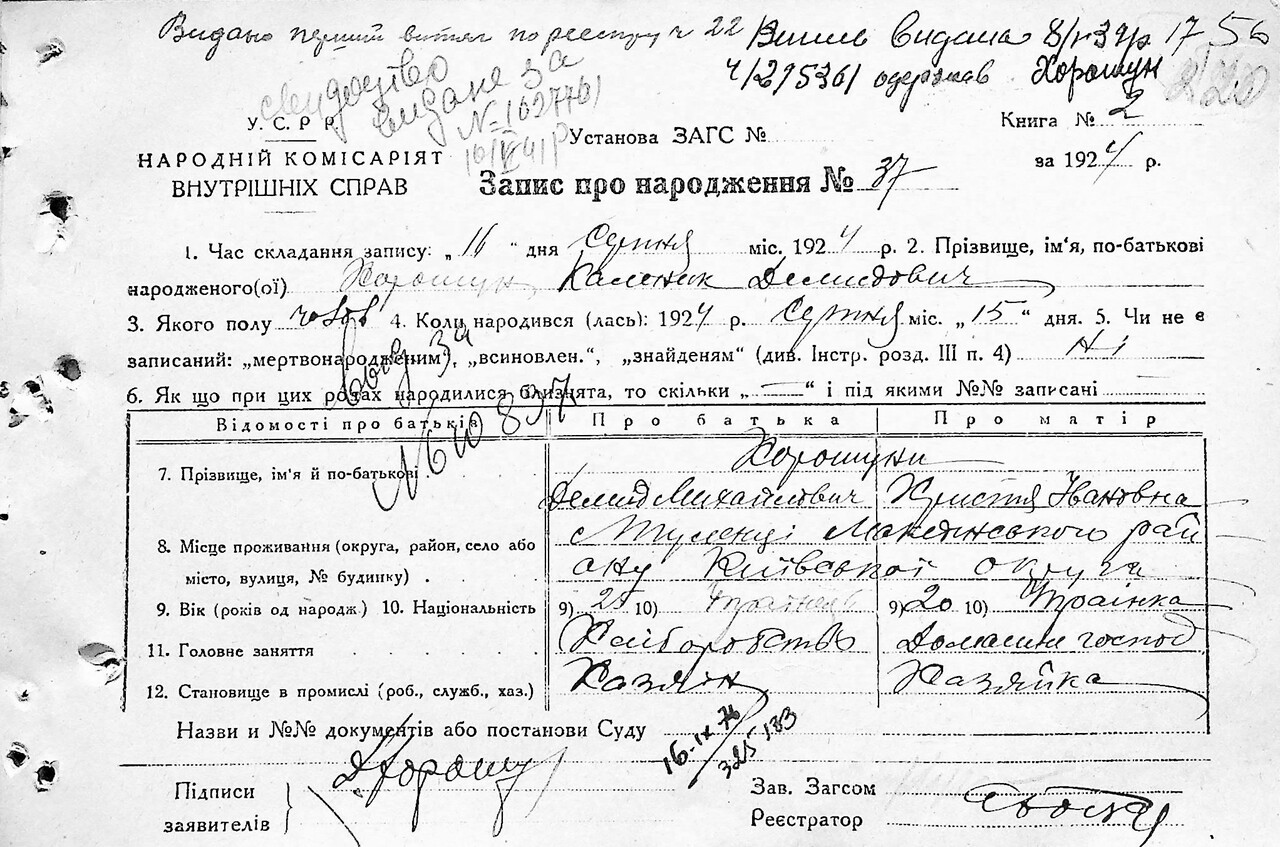 Видано перший витяг по реестру ч 22 Витяг видана 8/І-34р 17 56
ч/295361 одержав Хорошун
свидоцтво
видане за
№ 1027761
У. С. Р. Р.
НАРОДНІЙ КОМІСАРІЯТ
ВНУТРІШНІХ СПРАВ
Установа ЗАГС №
Книга № 2
за 1924 р.
Запис про народження № 37
1. Час складання запису: „ 16 “ дня Серпня міс. 1924 р. 2. Прізвище, ім'я, по-батькові
народженого(ої) Хорошун Каленик Демидович
3. Якого полу чолов 4. Коли народився (лась): 1924 р. Серпня міс. „ 15 “ дня. 5. Чи не є
записаний: „мертвонародженим“, „всиновлен.“, „знайденям“ (див. Інстр. розд. III п. 4) Ні
6. Як що при цих родах народилися близнята, то скільки „ — “ і під якими №№ записані
Відомості про батьків Про батька Про матір
7. Прізвище, ім'я й по-батькові Хорошуни
Демид Михайлович Христя Івановна
8. Місце проживання (округа, район, село або
місто, вулиця, № будинку)
с Туленці Македонського рай
ону Київської округа
9. Вік (років од народж) 10. Національність 9) 25 10) Українець 9) 20 10) Українка
11. Головне заняття Хліборобство Домашнє господ
12. Становище в промислі (роб., служб., хаз.) Хазяїн Хазяйка
Назви и №№ документів або постанови Суду
16-IX 76
325183
Підписи
заявителів
ДХорошун
Зав. Загсом
Реєстратор